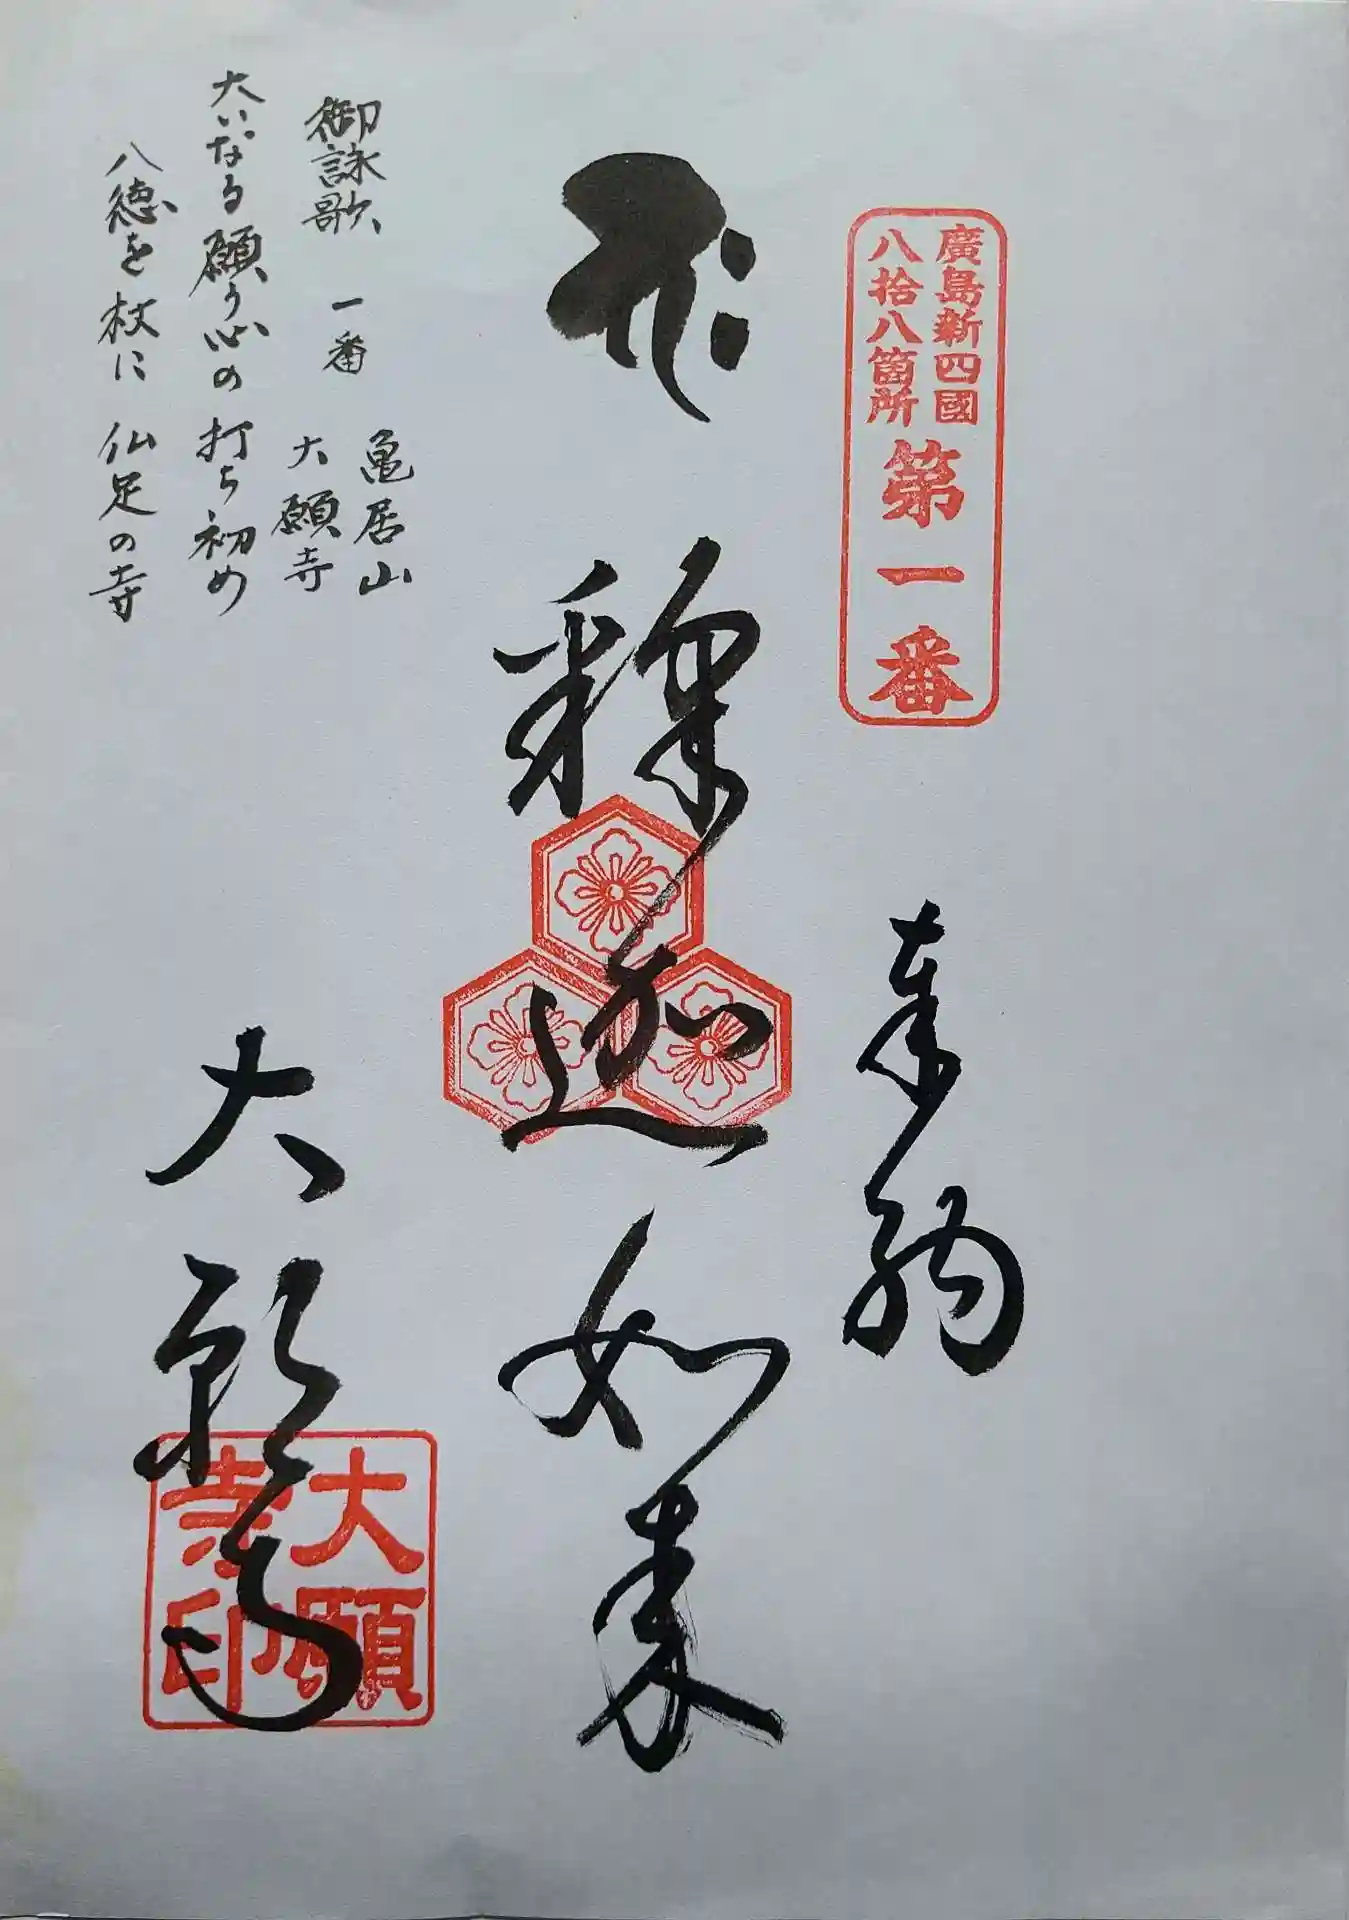 廣島新四國
八拾八箇所
第一番
奉納
𑖥𑖾 釋迦如来
大願寺
大願
寺印
御詠歌 一番 亀居山
大願寺
大いなる願う心の 打ち初め
八徳を杖に 仏足の寺